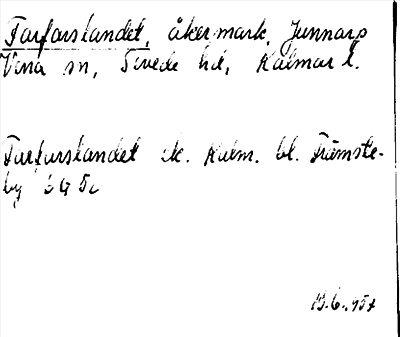 Farfarslandet, åkermark, Junnarp
Vena sn, Sevede hd, Kalmar l.
Farfarslandet ek. Kalm. bl. Främste-
by 6 G 5c